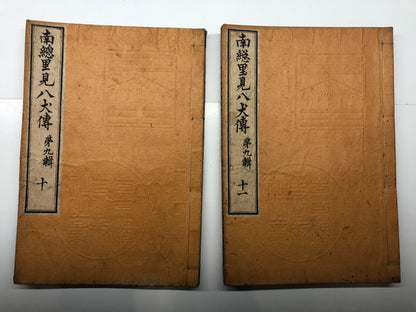 南總里見八犬傳 第九輯 十
南總里見八犬傳 第九輯 十一